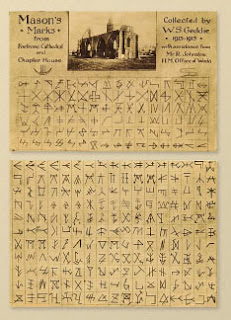 Mason's
Marks
from
Cathedral
and
Chapter House
Collected by
W.S. Geddie
with assistance from
Mr R. Johnstone
H.M. Office of Works